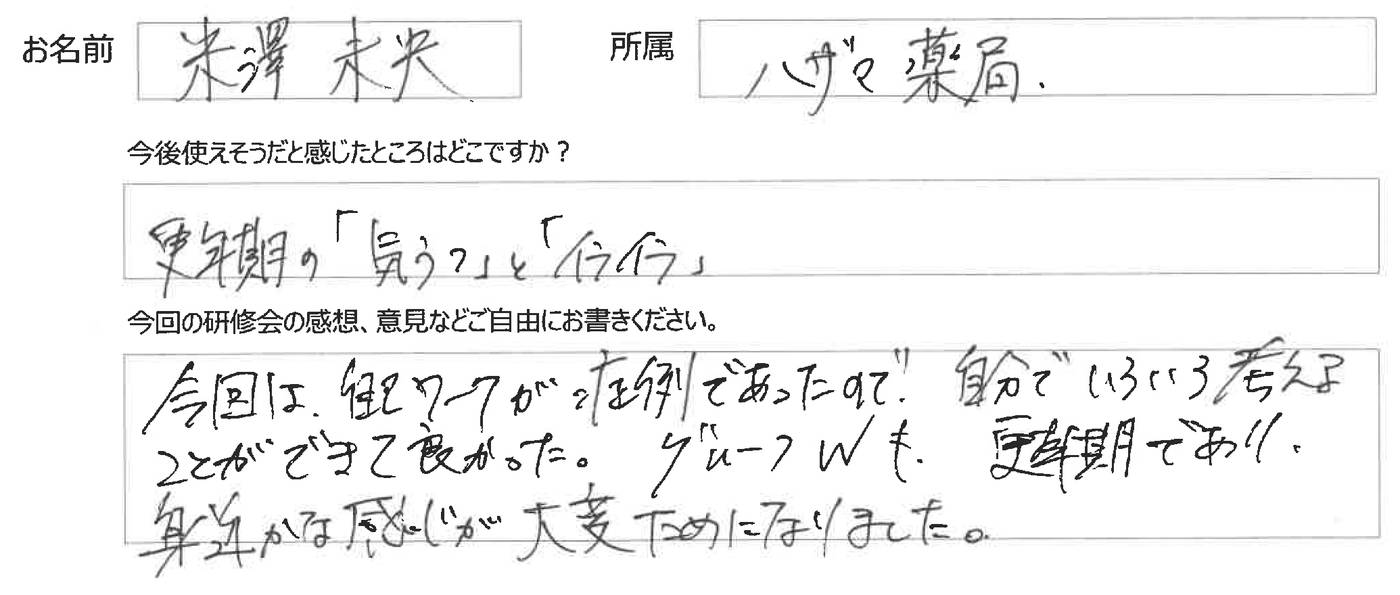 お名前 米澤 未央 所属 ハザマ薬局.
今後使えそうだと感じたところはどこですか？
更年期の「気うつ」と「イライラ」
今回の研修会の感想、意見などご自由にお書きください。
今回は、自己ワークが症例であったので、自分でいろいろ考える
ことができて良かった。 グループWも、更年期であり、
身近かな感じが大変ためになりました。